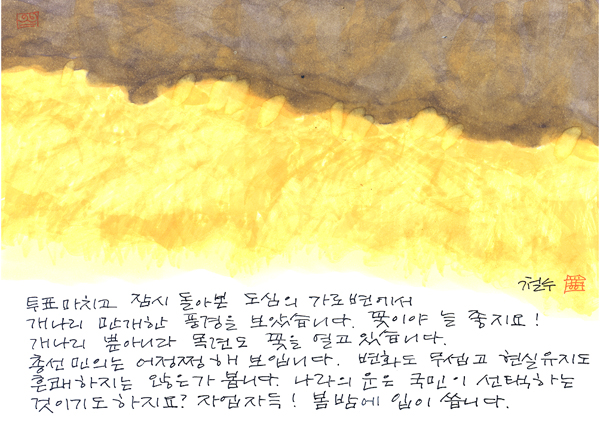 철수
투표마치고 잠시 돌아본 도심의 가로변에서
개나리 만개한 풍경을 보았습니다. 꽃이야 늘 좋지요!
개나리 뿐아니라 목련도 꽃을 열고 있습니다.
총선민의는 어정쩡해 보입니다. 변화도 무섭고 현실유지도
흔쾌하지는 않은가 봅니다. 나라의 운은 국민이 선택하는
것이기도 하지요? 자업자득! 봄밤에 입이 씁니다.